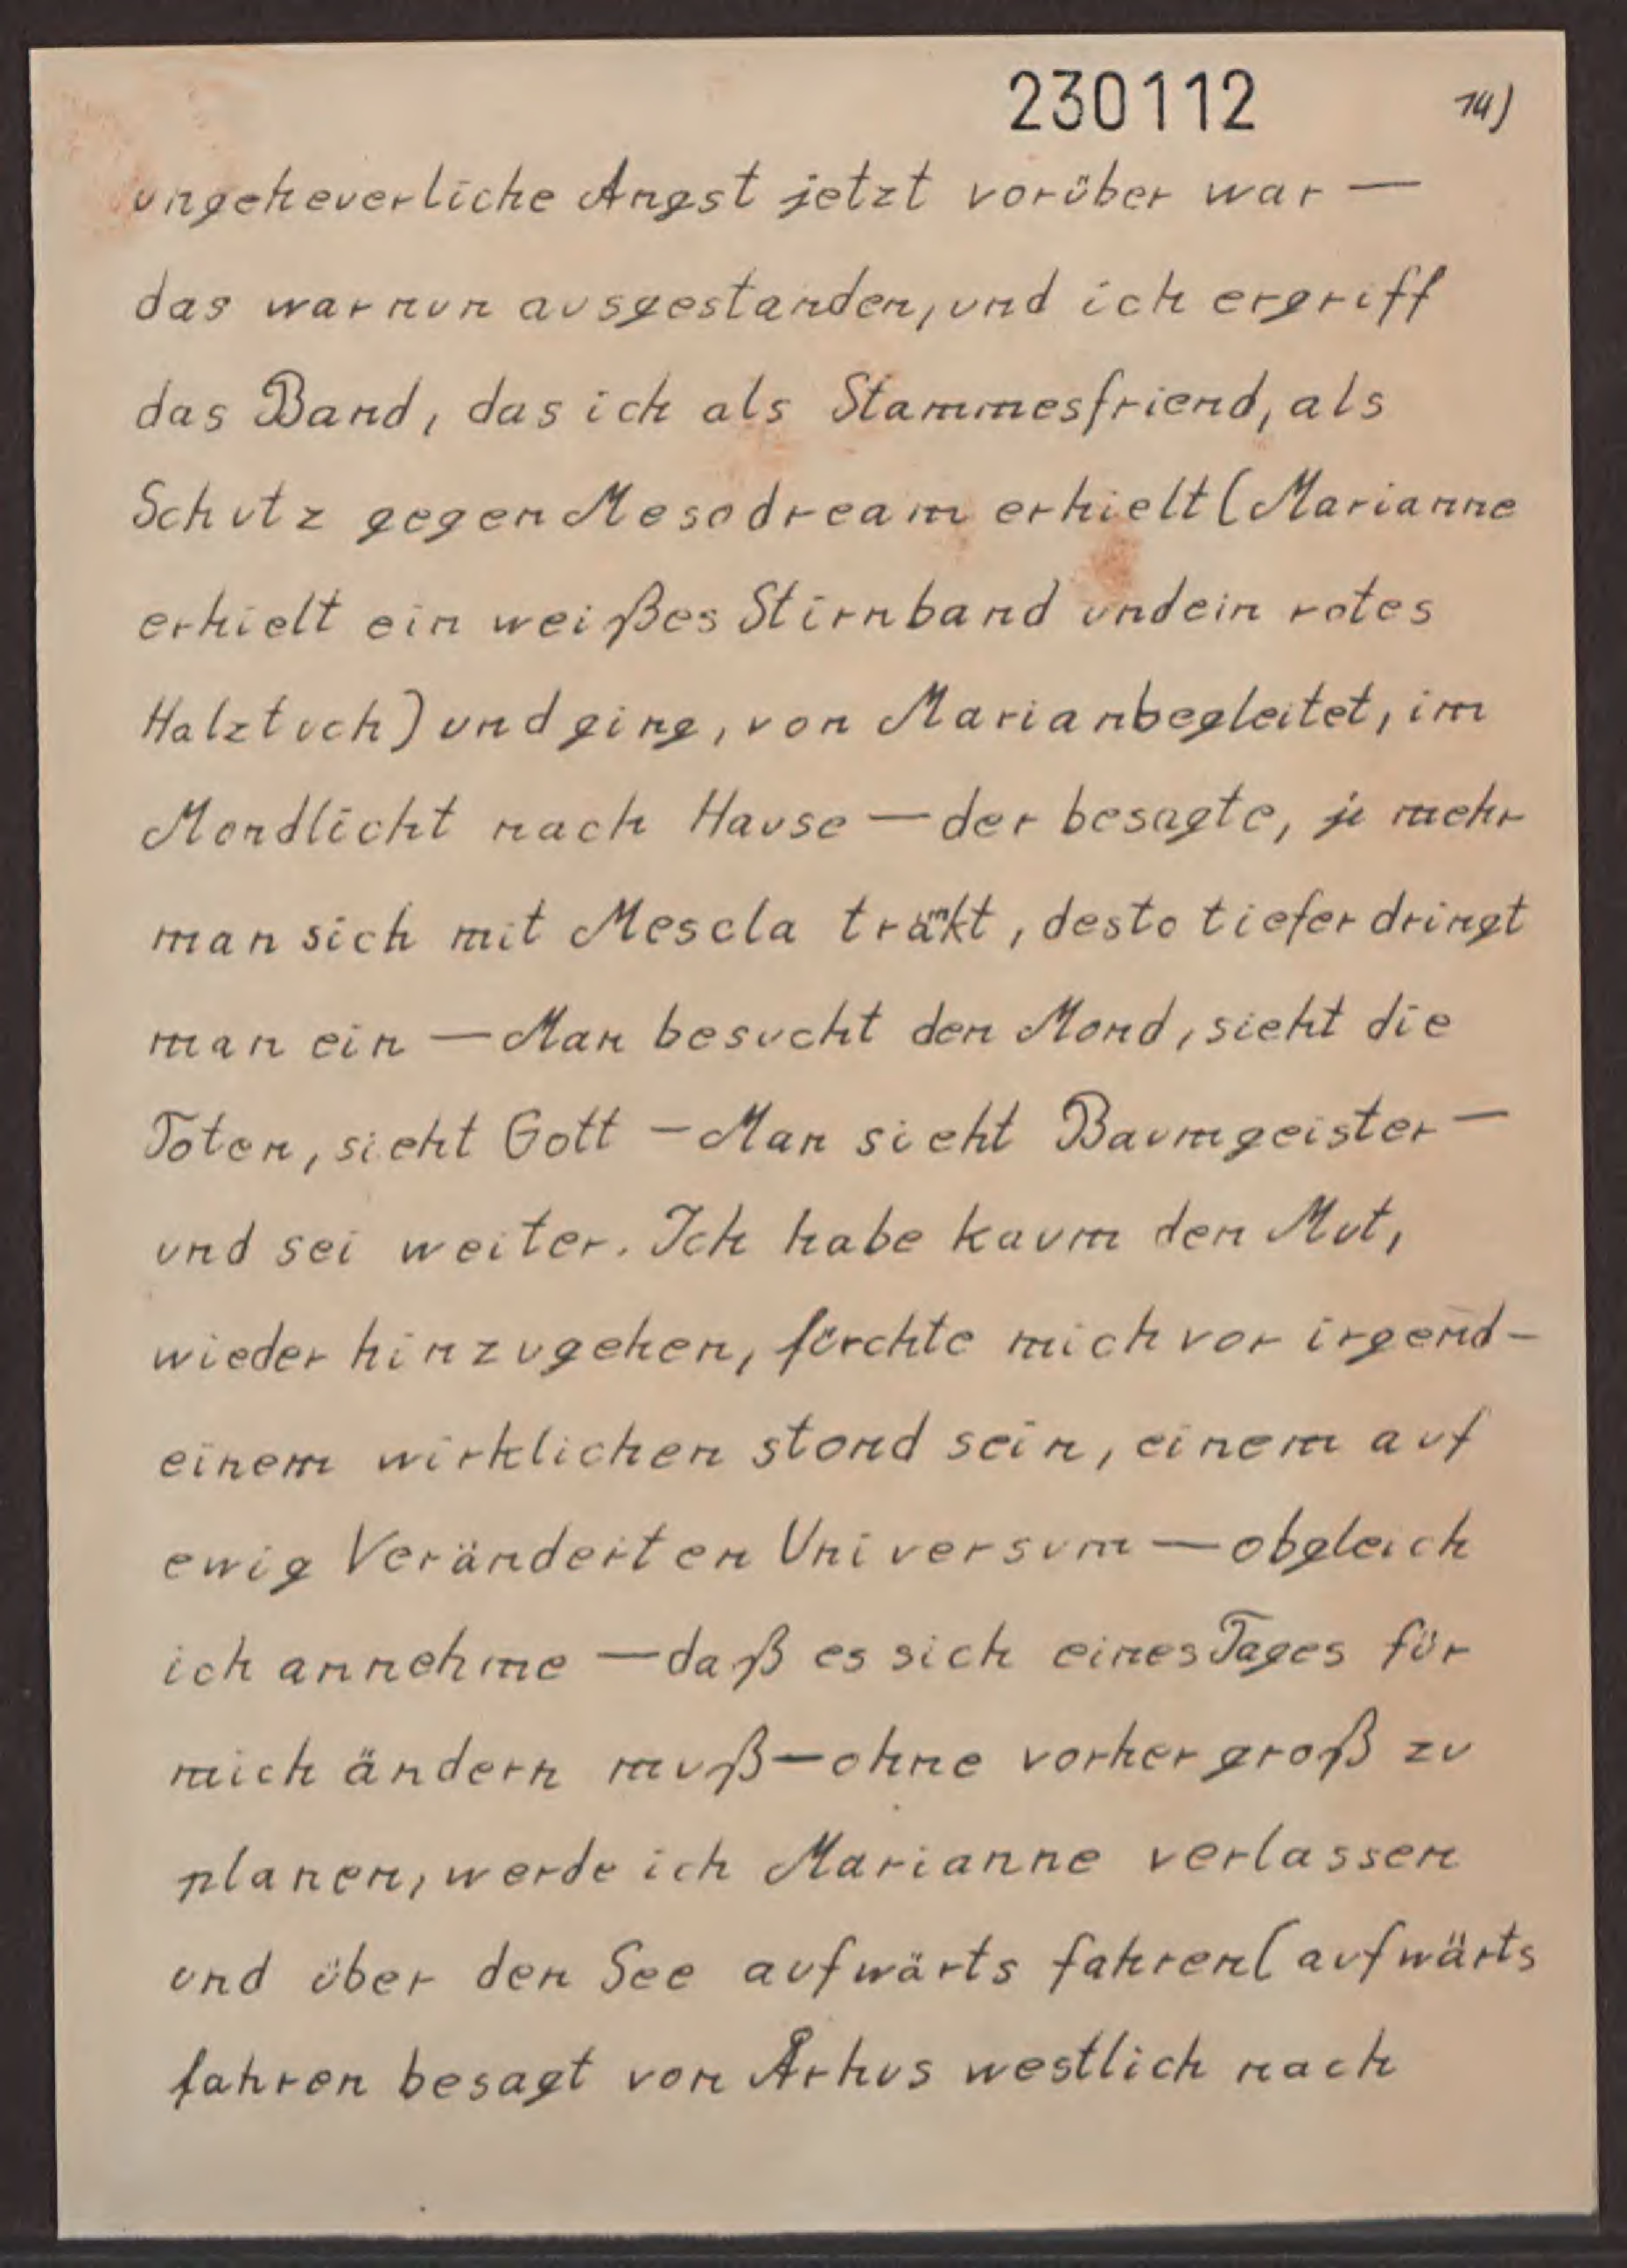 230112
14)
ungeheuerliche Angst jetzt vorüber war —
das war nun ausgestanden, und ich ergriff
das Band, das ich als Stammesfriend, als
Schutz gegen Mesodream erhielt (Marianne
erhielt ein weißes Stirnband und ein rotes
Halztuch) und ging, von Marian begleitet, im
Mondlicht nach Hause — der besagte, je mehr
man sich mit Mescla tränkt, desto tiefer dringt
man ein — Man besucht den Mond, sieht die
Toten, sieht Gott — Man sieht Baumgeister —
und sei weiter. Ich habe kaum den Mut,
wieder hinzugehen, fürchte mich vor irgend-
einem wirklichen stond sein, einem auf
ewig Veränderten Universum — obgleich
ich annehme — daß es sich eines Tages für
mich ändern muß — ohne vorher groß zu
planen, werde ich Marianne verlassen
und über den See aufwärts fahren (aufwärts
fahren besagt von Århus westlich nach